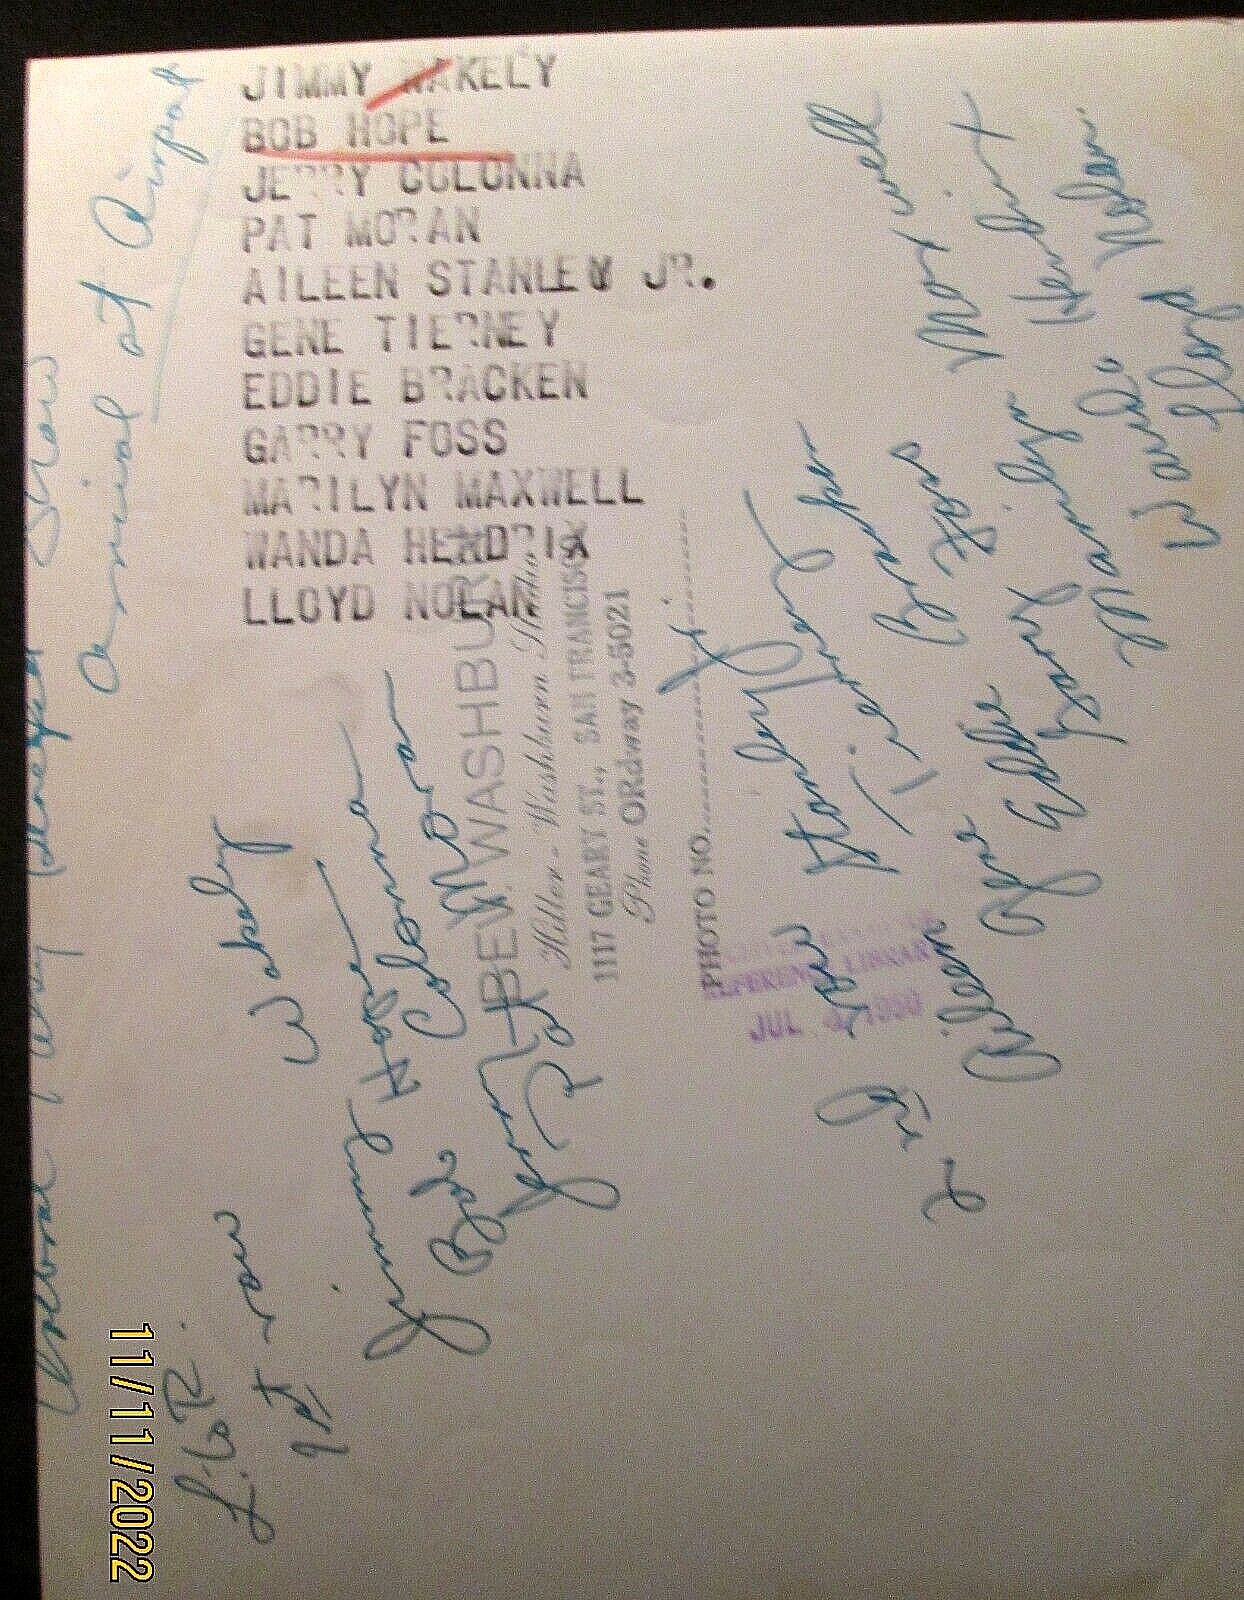 JIMMY WAKELY
BOB HOPE
JERRY COLONNA
PAT MORAN
AILEEN STANLEY JR.
GENE TIERNEY
EDDIE BRACKEN
GARRY FOSS
MARILYN MAXWELL
WANDA HENDRIX
LLOYD NOLAN
Cerebral Palsy Benefit Show
arrival at Airport
L. to R.
1st row
Jimmy Wakely
Bob Hope
Jerry Colonna
Pat Moran
BEV. WASHBURN
Hiller-Washburn Studios
1117 GEARY ST., SAN FRANCISCO
Phone ORdway 3-5021
PHOTO NO.
REFERENCE LIBRARY
JUL
2nd row
Aileen Stanley Jr.
Gene Tierney
Eddie Bracken
Gary Foss
Marilyn Maxwell
Wanda Hendrix
Lloyd Nolan.
11/11/2022